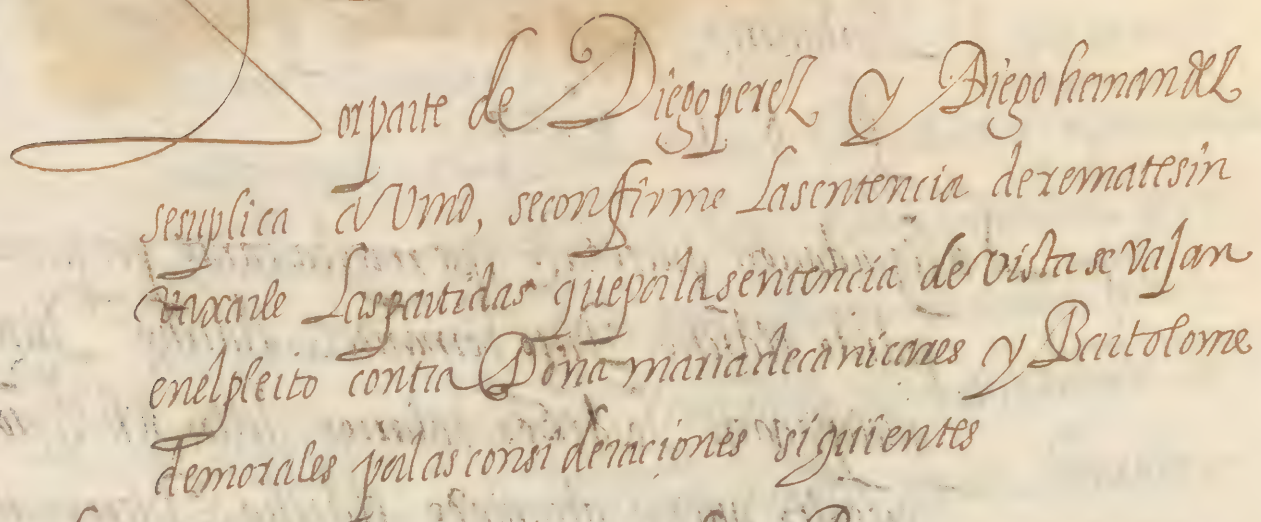 Por parte de Diego perez y Diego hernandez
se suplica a Vmd, se confirme La sentencia de remate sin
vaxarle Las partidas que por la sentencia de vista se vajan
en el pleito contra Doña maria de cañicares y Bartolome
de morales por las consideraciones siguientes